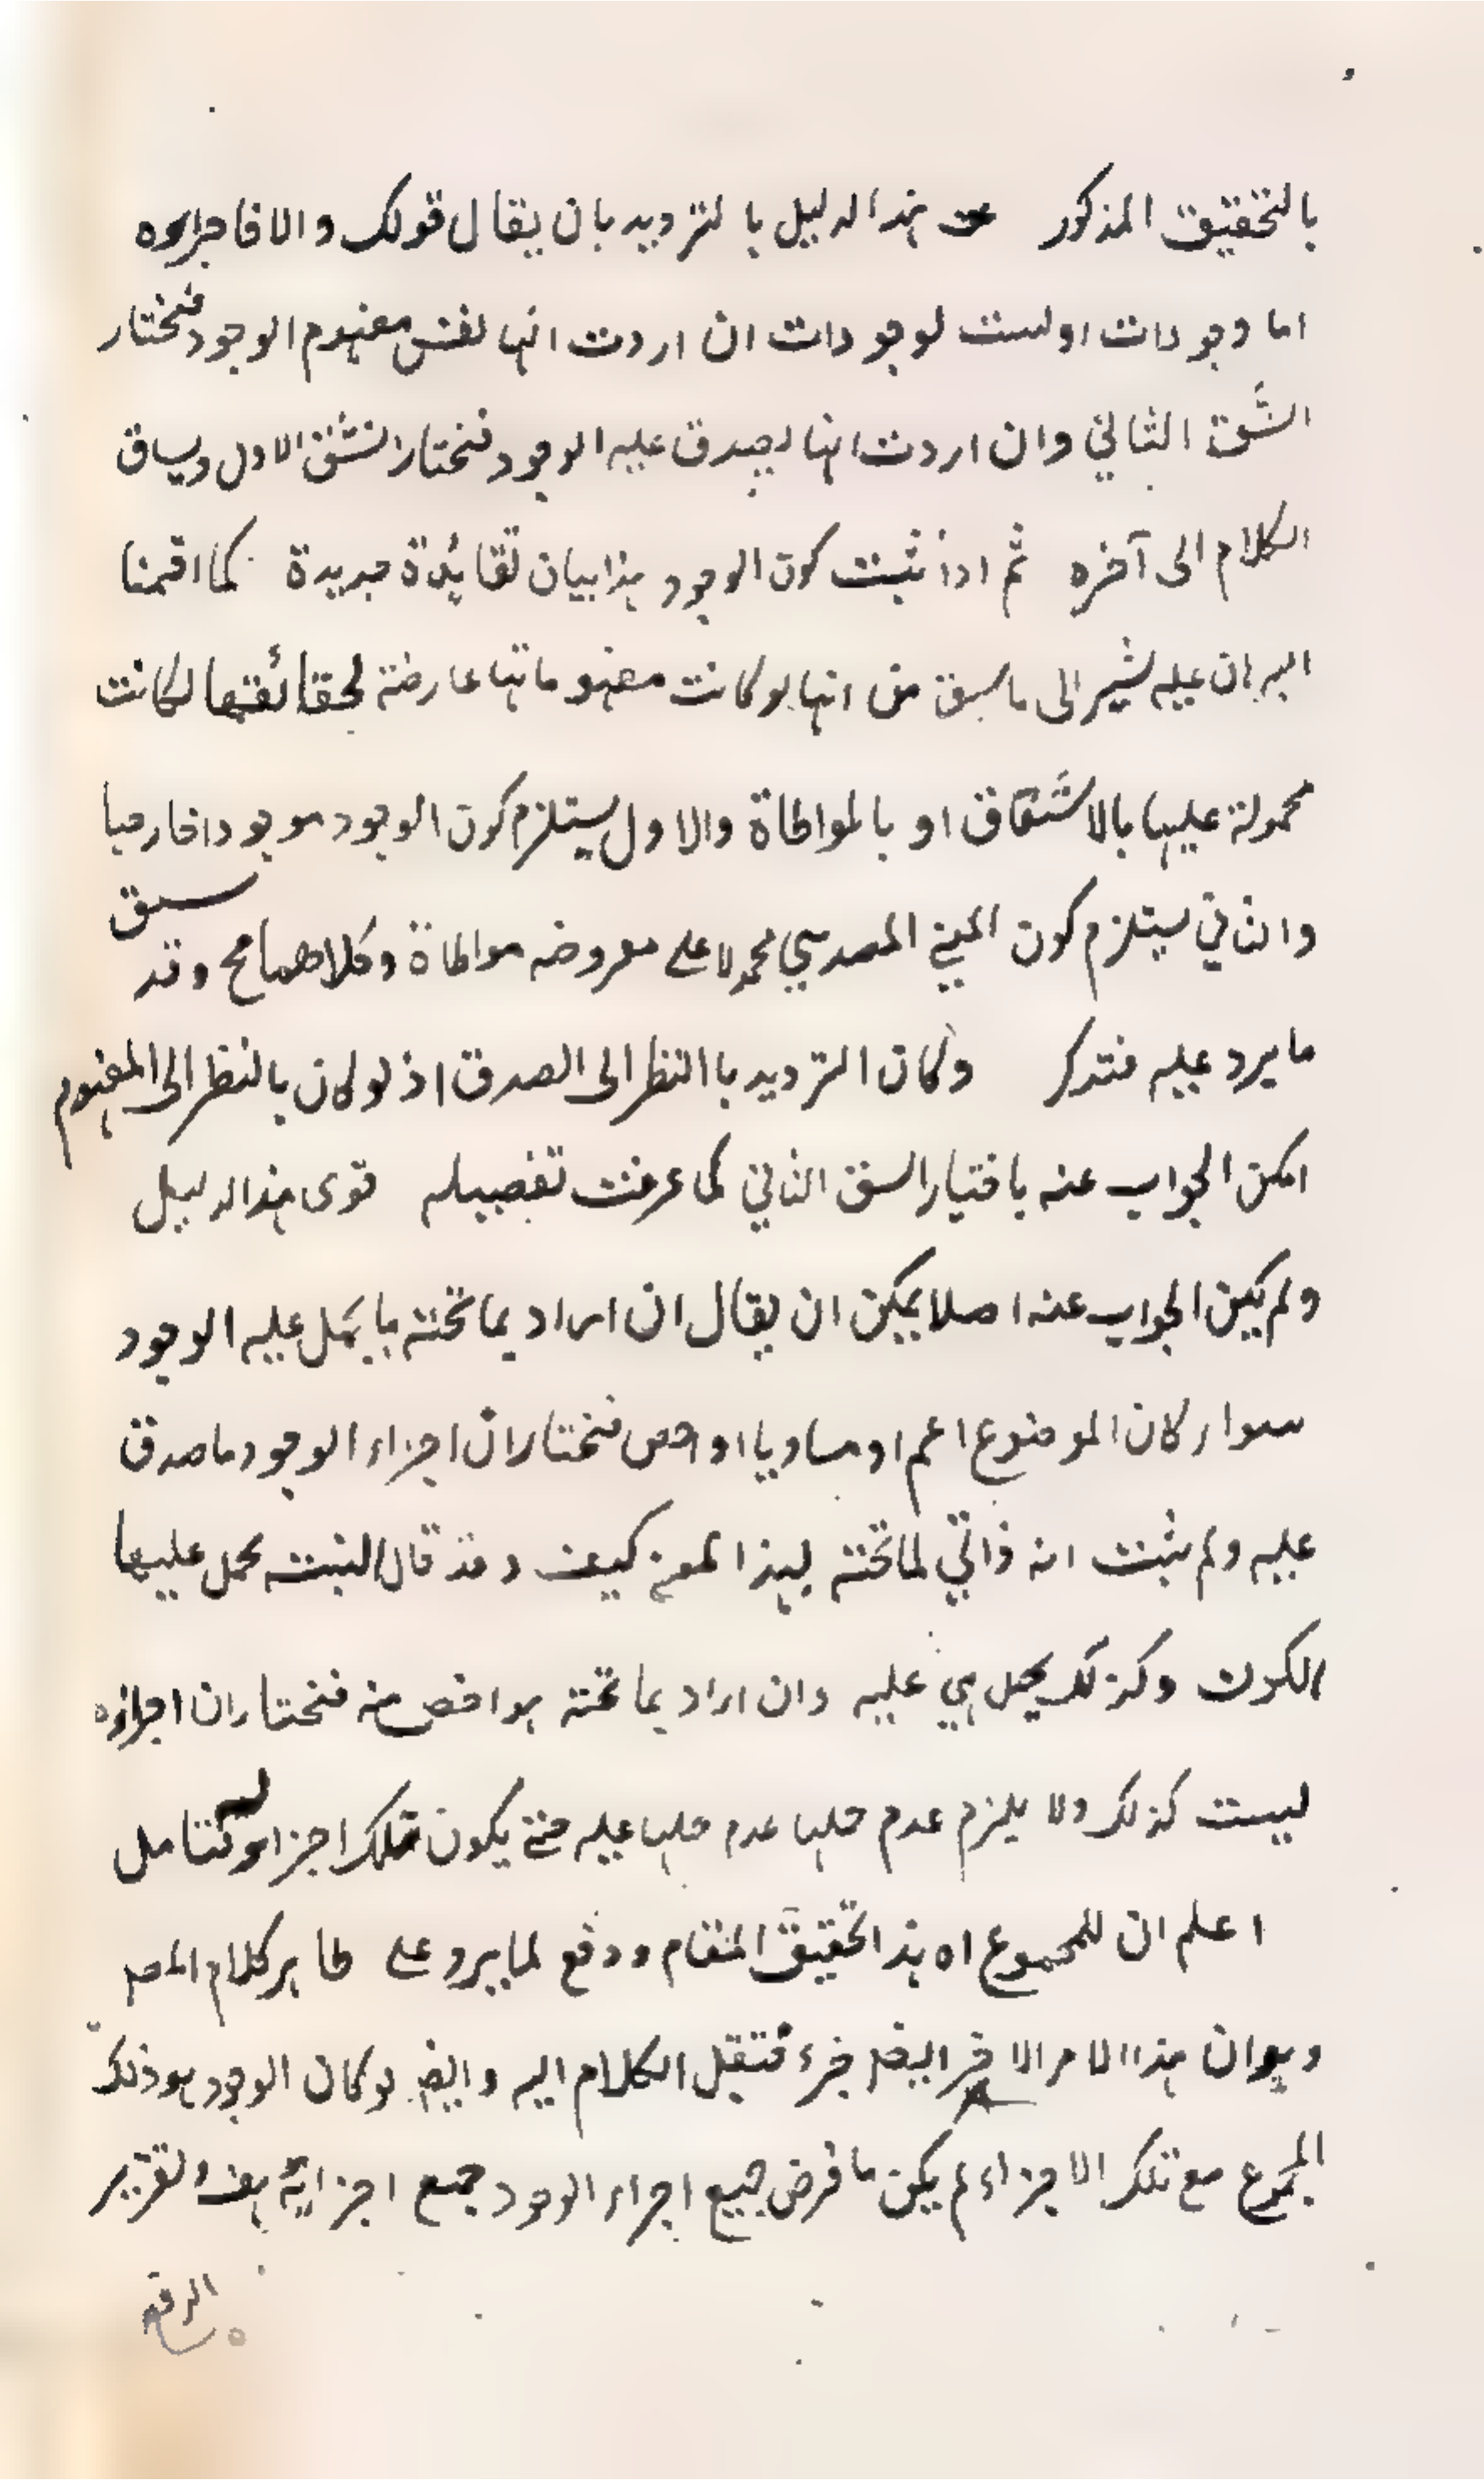 بالتحقيق المذكور عن هذا الدليل بالترديد بان يقال قولك والا فاجزاؤه
اما وجودات او ليست بوجودات ان اردت انها نفس مفهوم الوجود فنختار
الشق الثاني وان اردت انها يصدق عليه الوجود فنختار الشق الاول ويساق
الكلام الى آخره ثم اذا ثبت كون الوجود هذا بيان لفائدة جديدة كما اقمنا
البرهان عليه يشير الى ما سبق من انها لو كانت مفهوماتها عارضة لحقائقها لكانت
محمولة عليها بالاشتقاق او بالمواطاة والاول يستلزم كون الوجود موجودا خارجيا
والثاني يستلزم كون المعنى المصدري محمولا على معروضه مواطاة وكلاهما مح وقد سبق
ما يرد عليه فتذكر وكان الترديد باالنظر الى الصدق اذ لو كان بالنظر الى المفهوم
امكن الجواب عنه باختيار الشق الثاني كما عرفت تفصيله قوى هذا الدليل
ولم يكن الجواب عنه اصلا يمكن ان يقال ان اراد بما تحته ما يحمل عليه الوجود
سواء كان الموضوع اعم او مساويا او اخص فنختار ان اجزاء الوجود ما صدق
عليه ولم يثبت انه ذاتي لما تحته بهذا المعنى كيف وقد قال البتة يحمل عليها
الكون وكذلك يحمل هي عليه وان اراد بما تحته هو اخص منه فنختار ان اجزاؤه
ليست كذلك ولا يلزم عدم حملها عدم حملها عليه حتى يكون تلك اجزاء له فتامل
اعلم ان للمجموع اه هذا تحقيق المقام ودفع لما يرد على ظاهر كلام المصـ
وهو ان هذا الامر الاخر ايضا جزء فننقل الكلام اليه وايضا لو كان الوجود هو ذلك
المجموع مع تلك الاجزاء لم يكن ما فرض جميع اجزاء الوجود جميع اجزائه هف وتقرير
الدفع